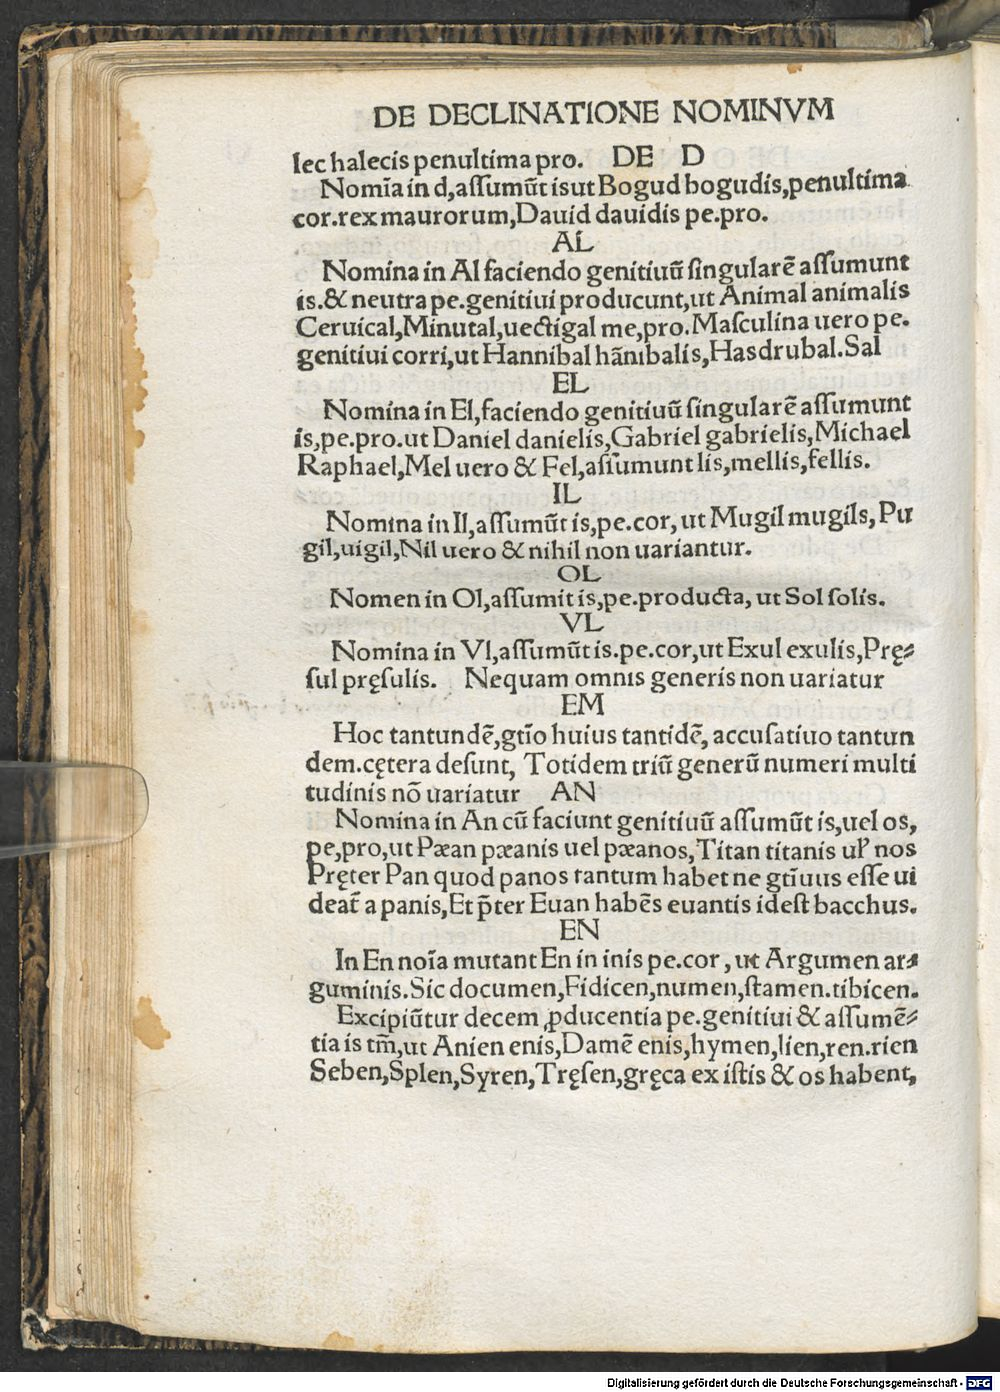 DE DECLINATIONE NOMINVM
lec halecis penultima pro. DE D
Nomĩa in d,aſſumũt isut Bogud bogudis,penultima
cor.rex maurorum,Dauid dauidis pe.pro.
AL
Nomina in Al faciendo genitiuũ ſingularẽ aſſumunt
is.& neutra pe.genitiui producunt,ut Animal animalis
Ceruical,Minutal,uectigal me,pro.Maſculina uero pe.
genitiui corri,ut Hannibal hãnibalis,Hasdrubal.Sal
EL
Nomina in El,faciendo genitiuũ ſingularẽ aſſumunt
is,pe.pro.ut Daniel danielis,Gabriel gabrielis,Michael
Raphael,Mel uero & Fel,aſſumunt lis,mellis,fellis.
IL
Nomina in Il,aſſumũt is,pe.cor, ut Mugil mugils, Pu
gil,uigil,Nil uero & nihil non uariantur.
OL
Nomen in Ol,aſſumit is,pe.producta, ut Sol ſolis.
VL
Nomina in Vl,aſſumũt is.pe.cor,ut Exul exulis,Prę⸗
ſul pręſulis. Nequam omnis generis non uariatur
EM
Hoc tantundẽ,gtĩo huius tantidẽ, accuſatiuo tantun
dem.cętera deſunt, Totidem triũ generũ numeri multi
tudinis nõ uariatur AN
Nomina in An cũ faciunt genitiuũ aſſumũt is,uel os,
pe,pro,ut Pæan pæanis uel pæanos,Titan titanis uꝉ nos
Pręter Pan quod panos tantum habet ne gtĩuus eſſe ui
deat̃ a panis,Et p̃ter Euan habẽs euantis ideſt bacchus.
EN
In En noĩa mutant En in inis pe.cor , ut Argumen ar⸗
guminis.Sic documen,Fidicen,numen,ſtamen.tibicen.
Excipiũtur decem ꝓducentia pe.genitiui & aſſumẽ⸗
tia is tm̃,ut Anien enis,Damẽ enis,hymen,lien,ren.rien
Seben,Splen,Syren,Tręſen,gręca ex iſtis & os habent,
Digitalisierung gefördert durch die Deutsche Forschungsgemeinschaft - DFG